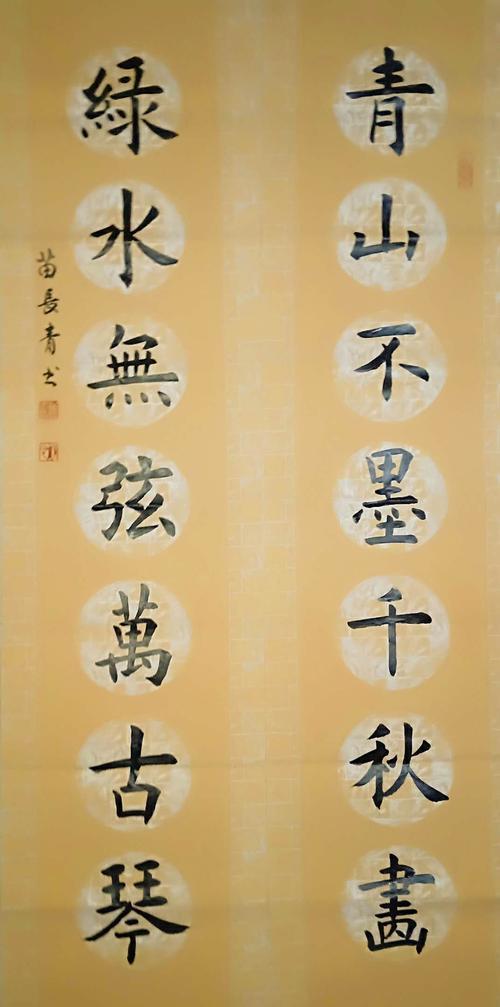 青山不墨千秋畫
綠水無弦萬古琴
苗長青书